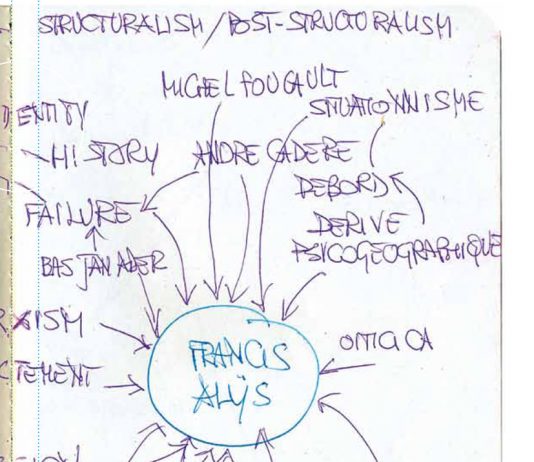 STRUCTURALISM / POST-STRUCTURALISM
MICHEL FOUCAULT
SITUATIONNISME
ENTITY
HISTORY
ANDRE CADERE
DEBORD
FAILURE
DERIVE
PSICOGEOGRAPHIQUE
BAS JAN ADER
XISM
OITICICA
FRANCIS
ALŸS
TEMENT